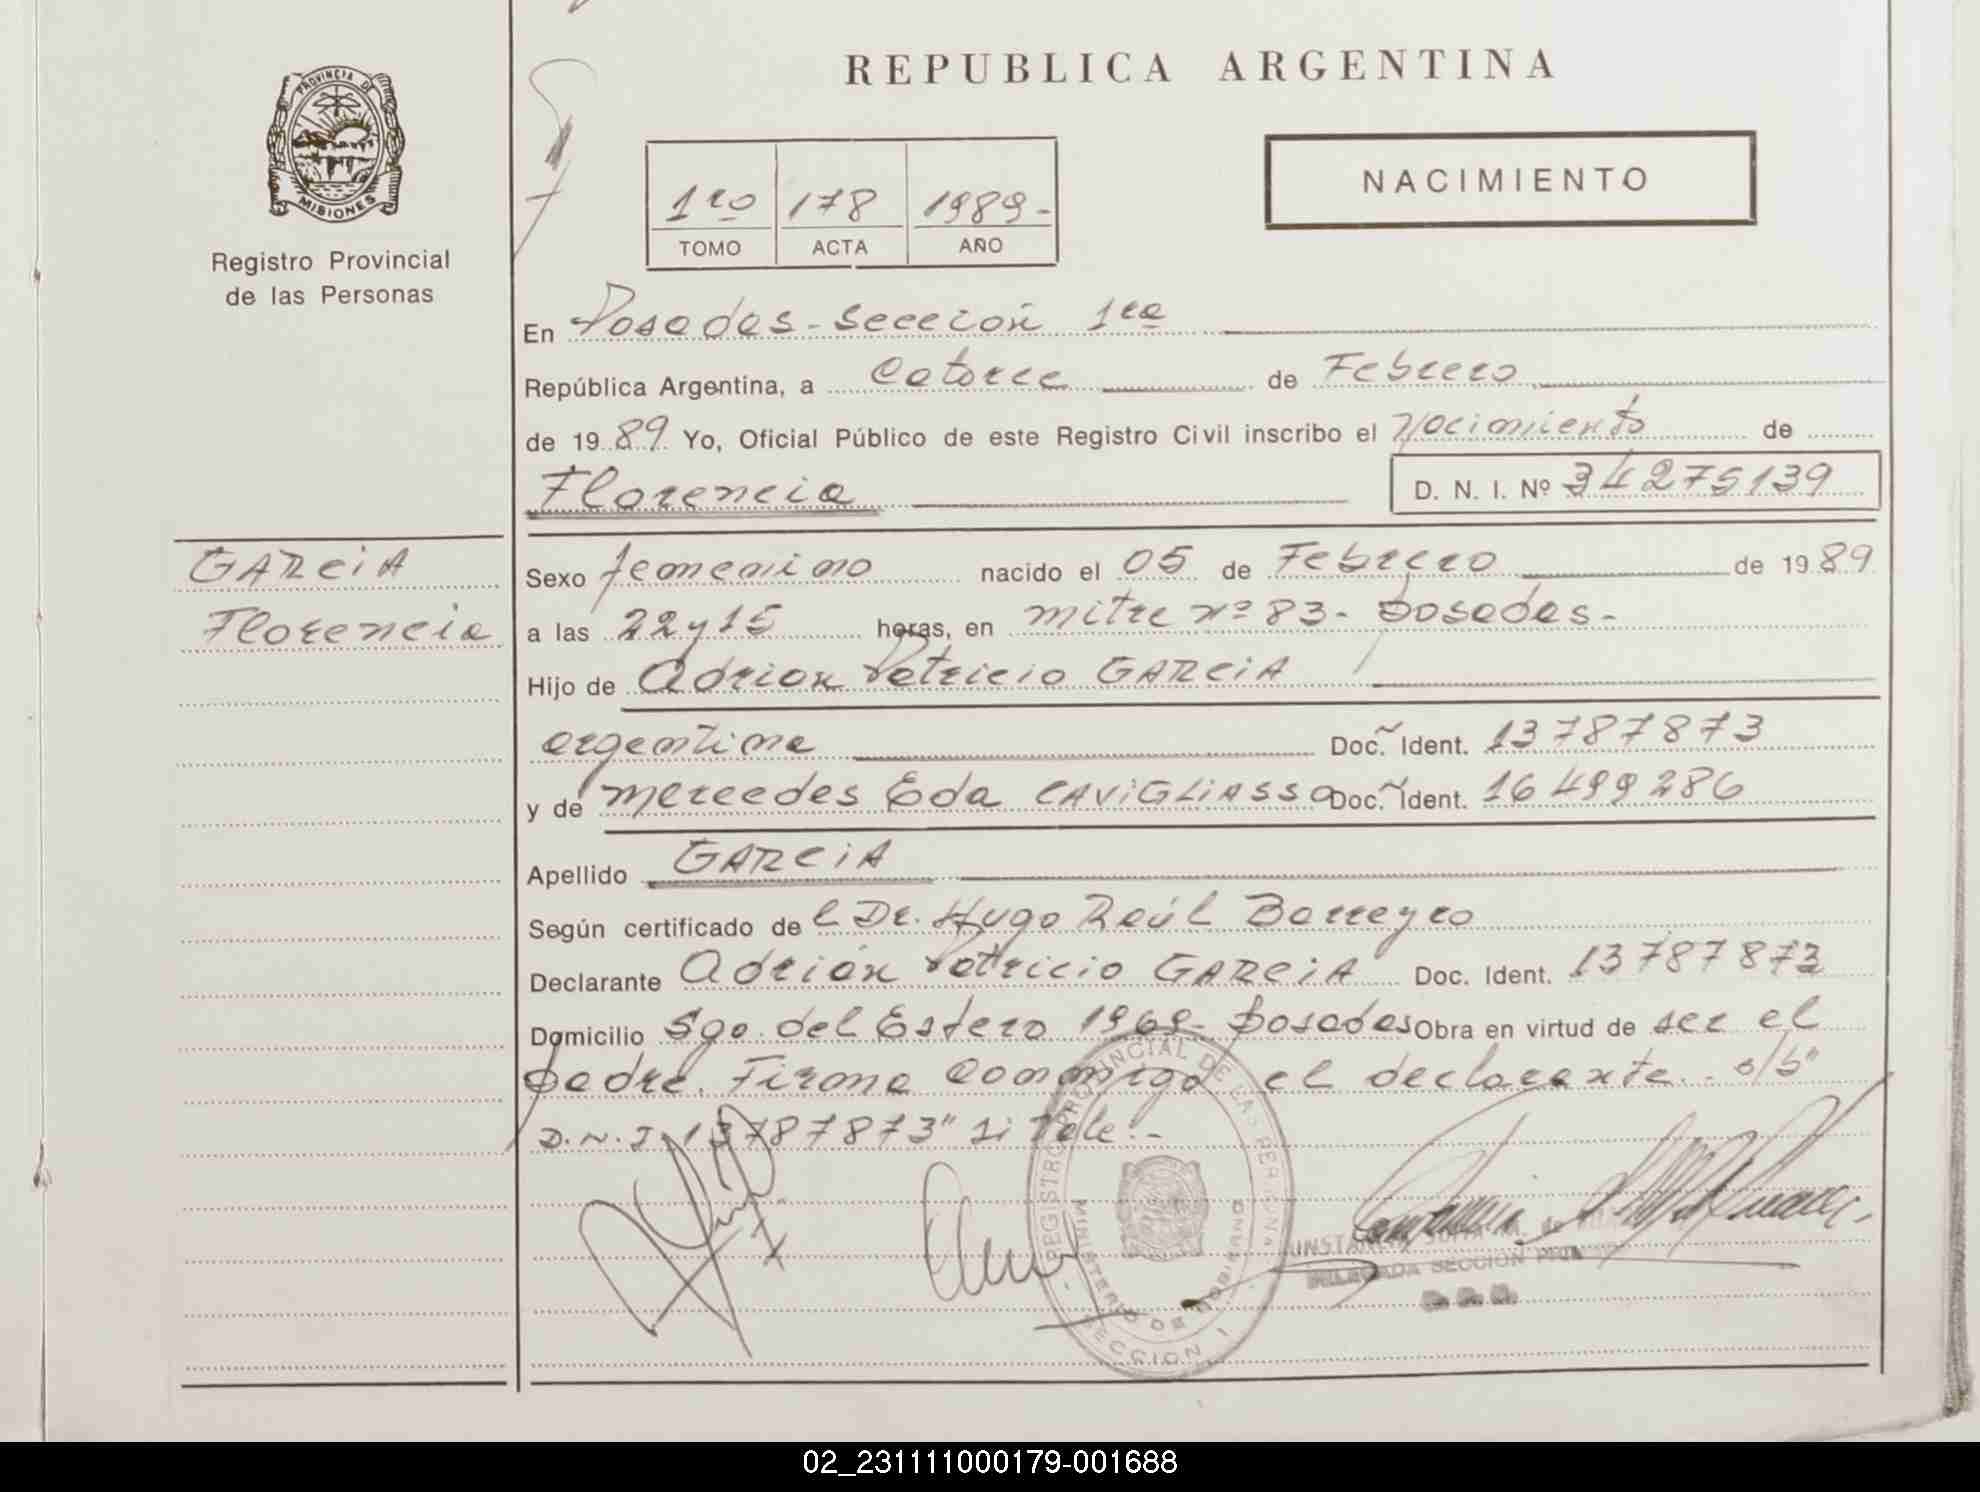 PROVINCIA DE
MISIONES
Registro Provincial
de las Personas
GARCiA
Florencia
REPUBLICA ARGENTINA
NACIMIENTO
1ro 178 1989-
TOMO ACTA AÑO
En Posadas - Sección 1ra
República Argentina, a Catorce de Febrero
de 1989 Yo, Oficial Público de este Registro Civil inscribo el Nacimiento de
Florencia D. N. I. Nº 34275139
Sexo femenino nacido el 05 de Febrero de 1989
a las 22 y 15 horas, en mitre nº 83 - Posadas -
Hijo de Adrian Patricio GARCiA
argentina Doc. Ident. 13787873
y de mercedes Eda CAViGLiASSO Doc. Ident. 16499286
Apellido GARCiA
Según certificado de l Dr. Hugo Raúl Barreyro
Declarante Adrián Patricio GARCiA Doc. Ident. 13787873
Domicilio Sgo. del Estero 1969 - Posadas Obra en virtud de ser el
padre. Firma conmigo el declarante. - s/b"
D.N.I. 13787873" si vale. -
REGISTRO PROVINCIAL DE LAS PERSONAS
MINISTERIO DE GOBIERNO
- SECCION I -
DELEGADA SECCION
02_231111000179-001688